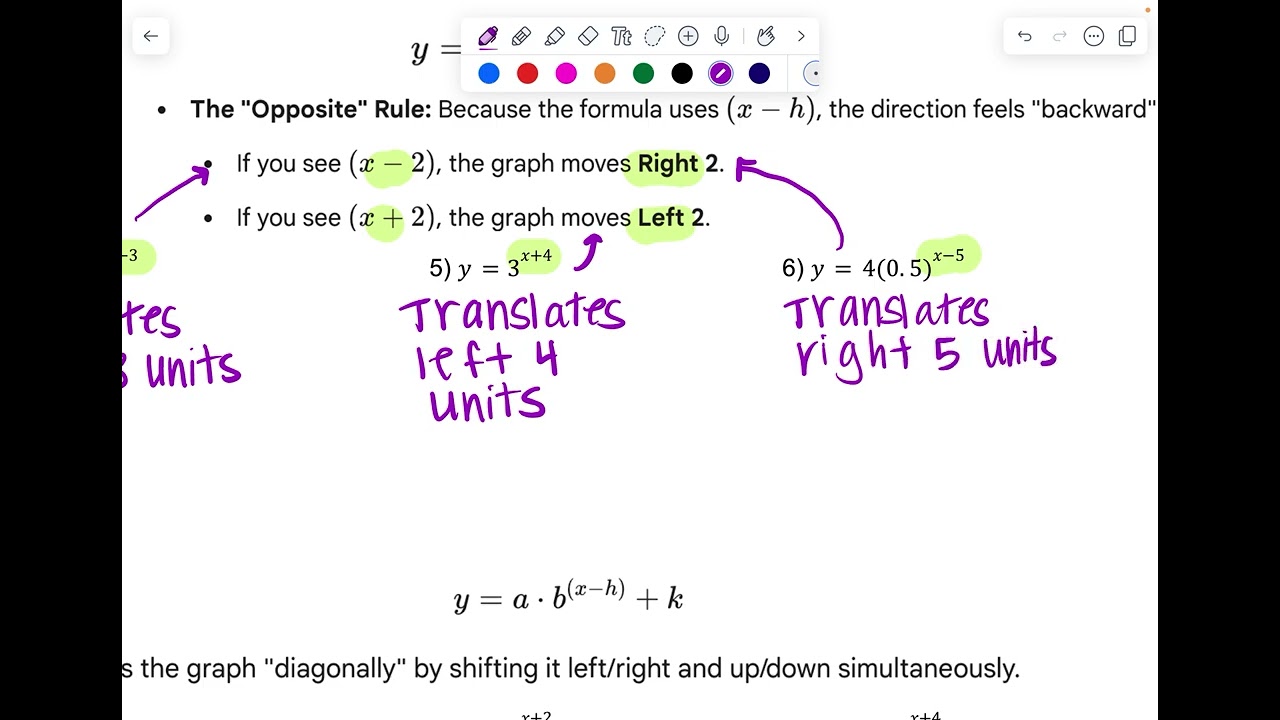 y =
Tt
• The "Opposite" Rule: Because the formula uses (x − h), the direction feels "backward"
• If you see (x − 2), the graph moves Right 2.
• If you see (x + 2), the graph moves Left 2.
−3
5) y = 3^{x+4}
6) y = 4(0.5)^{x−5}
Translates
left 4
units
Translates
right 5 units
units
y = a · b^{(x−h)} + k
the graph "diagonally" by shifting it left/right and up/down simultaneously.
x+2
x+4